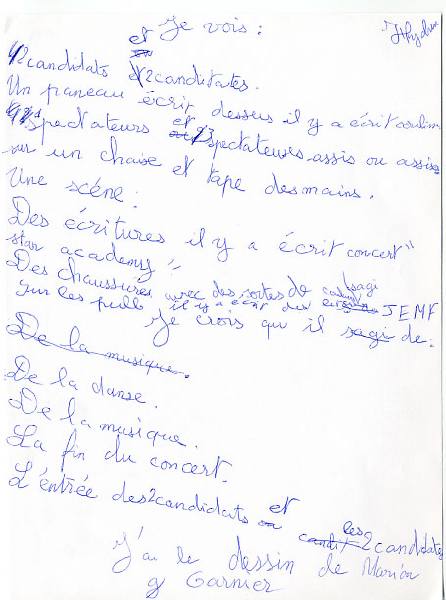 Je vois :
et
2 candidats 2 candidates.
Un paneau écrit dessus il y a écrit
spectateurs et 23 spectateures assis ou assise
sur un chaise et tape des mains.
Une scéne :
Des écritures il y a écrit concert"
star academy"
Des chaussures avec des sortes de
sur les pulls il y a écrit des JEMF
Je crois qu il sagi de :
De la musique.
De la danse.
De la musique.
La fin du concert.
L'éntrée des 2 candidats et les 2 candidates
J'ai le dessin de Marion
Garnier